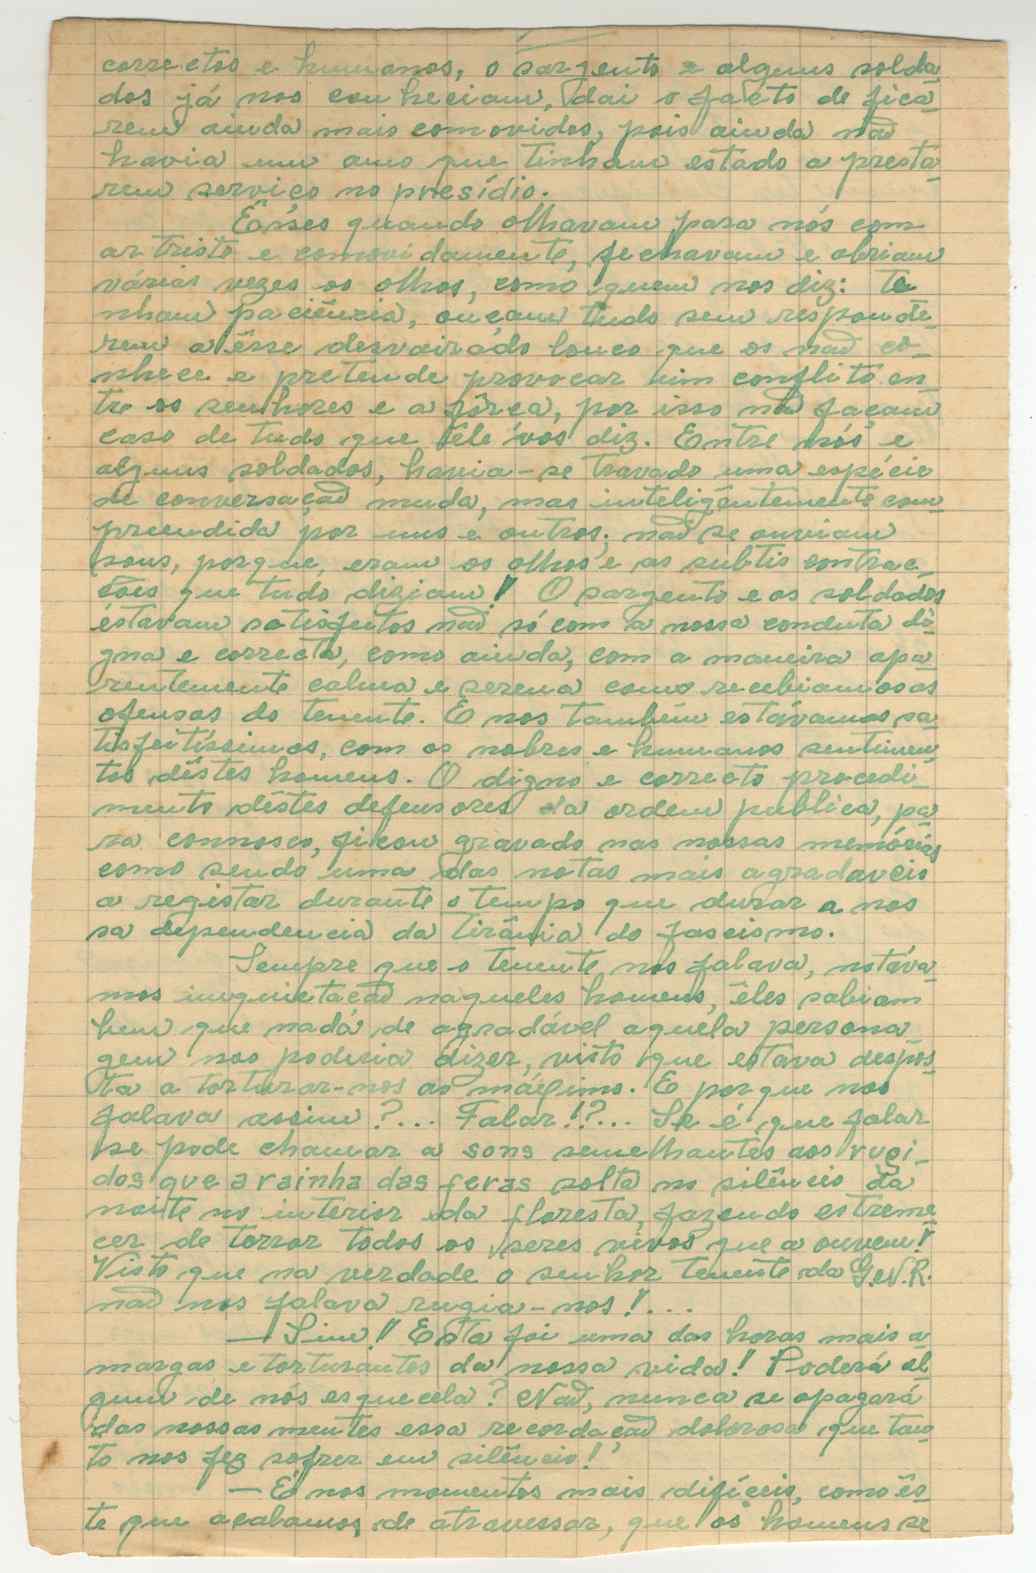 correctos e humanos, o sargento e alguns solda
dos já nos conheciam, daí o facto de fica
rem ainda mais comovidos, pois ainda não
havia um ano que tinham estado a presta
rem serviço no presídio.
Êsses quando olhavam para nós com
ar triste e comovidamente, fechavam e abriam
várias vezes os olhos, como quem nos diz: te
nham paciência, ouçam tudo sem responde-
rem a êsse desvairado louco que os não co-
nhece e pretende provocar um conflito en-
tre os senhores e a fôrça, por isso não façam
caso de tudo que êle vos diz. Entre nós e
alguns soldados, havia-se travado uma espécie
de conversação muda, mas inteligêntemente com
preendida por uns e outros; não se ouviam
sons, porque, eram os olhos e as subtis contrac-
ções que tudo diziam! O sargento e os soldados
estavam satisfeitos não só com a nossa conduta di
gna e correcta, como ainda, com a maneira apa
rentemente calma e serena como recebiamos as
ofensas do tenente. E nos também estávamos sa
tisfeitíssimos, com os nobres e humanos sentimen
tos dêstes homens. O digno e correcto procedi-
mento dêstes defensores da ordem publica, pa
ra connosco, ficou gravado nas nossas memórias
como sendo uma das notas mais agradaveis
a registar durante o tempo que durar a nos
sa dependencia da tirânia do fascismo.
Sempre que o tenente nos falava, notáva
mos inquietação naqueles homens, êles sabiam
bem que nada de agradável aquela persona
gem nos podia dizer, visto que estava despos
ta a torturar-nos ao máximo. E porque nos
falava assim?... Falar!?... Se é que falar
se pode chamar a sons semelhantes aos rugi-
dos que a rainha das feras solta no silêncio da
noite no interior da floresta, fazendo estreme
cer de terror todos os seres vivos que a ouvem!
Visto que na verdade o senhor tenente da G.N.R.
não nos falava rugia-nos!...
— Sim! Esta foi uma das horas mais a
margas e torturantes da nossa vida! Poderá al
guem de nós esquecela? Não, nunca se apagará
das nossas mentes essa recordação dolorosa que tan
to nos fez sofrer em silêncio!
— É nos momentos mais difíceis, como ês-
te que acabamos de atravessar, que os homens se